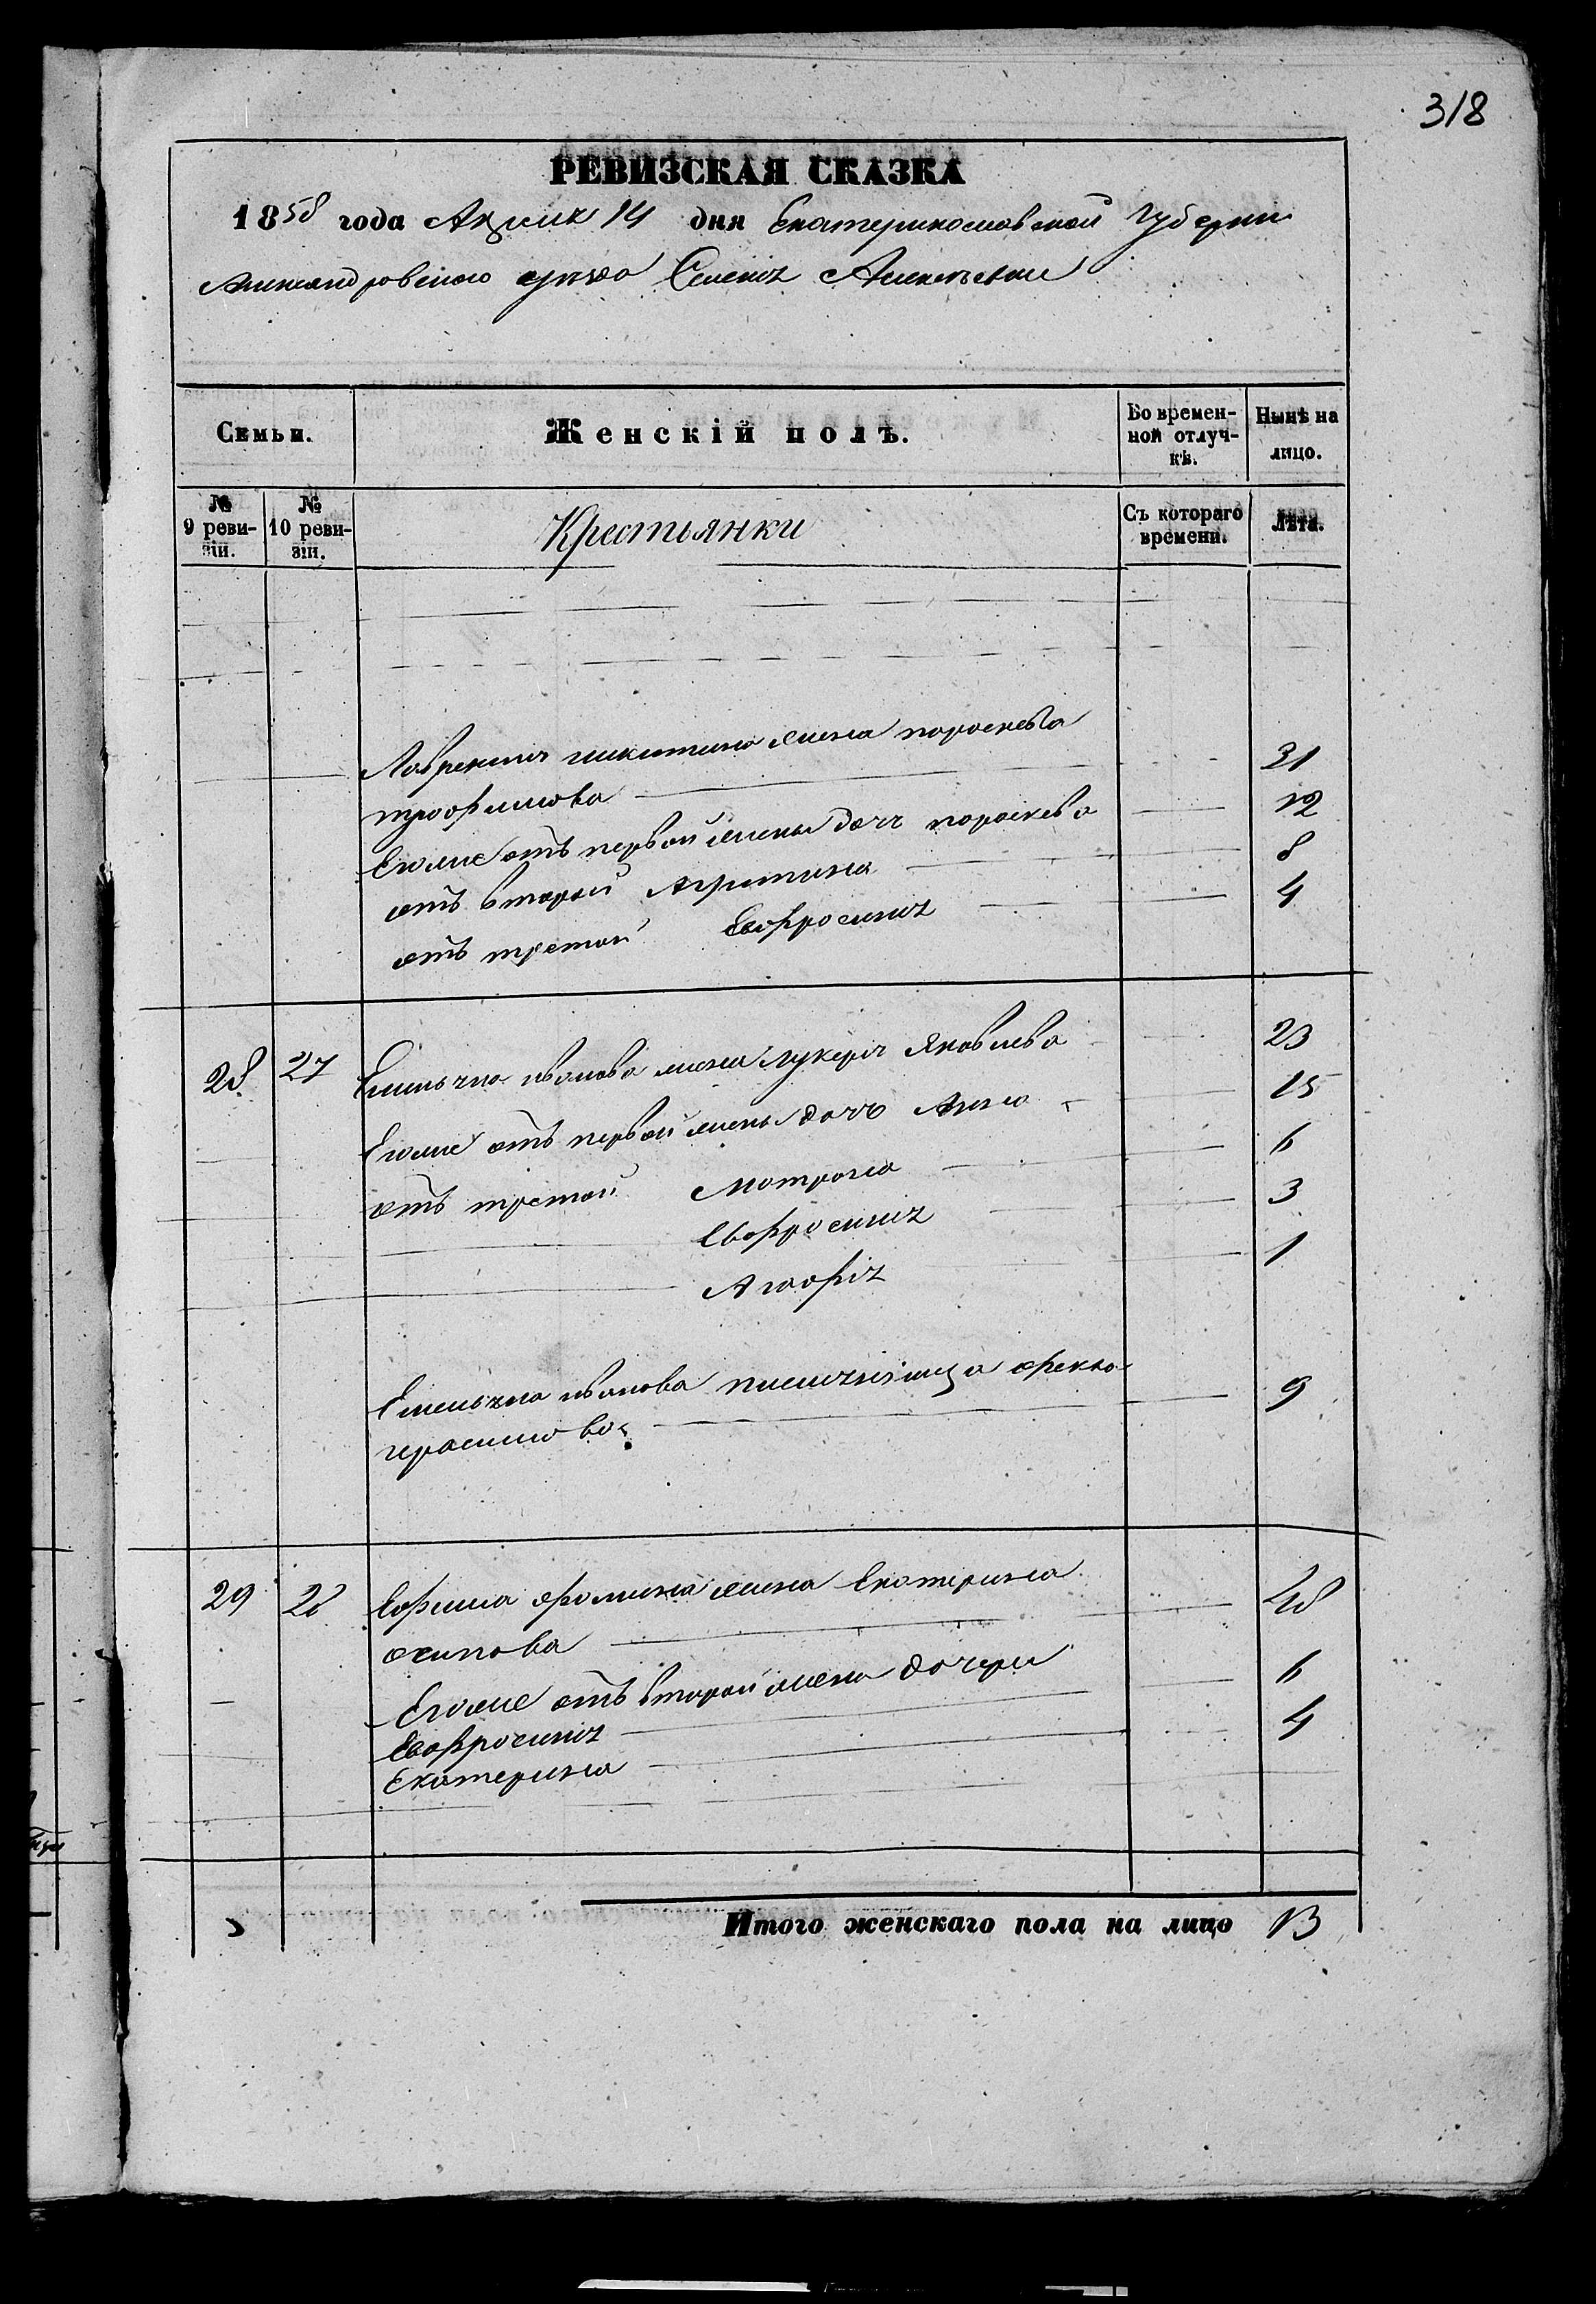 318
РЕВИЗСКАЯ СКАЗКА
1858 года Апреля 14 дня Екатеринославской губерни
Александровского уезда Селенія Алексѣевки
Семьи.
Женскій полъ.
Во времен-
ной отлуч-
кѣ.
Нынѣ на
лицо.
№
9 реви-
зіи.
№
10 реви-
зіи.
Крестьянки
Съ котораго
времени.
Лѣта.
Лаврентия никитина жена пораскева
трофимова 31
Егоже отъ первой жены дочь пораскева 12
отъ второй Агрипина 8
отъ третой Евфросиния 4
28 27 Емельяна иванова жена лукерия Яковлева 23
Егоже отъ первой жены дочь Анна 15
отъ третой Матрона 6
Евфросиния 3
Агафія 1
Емельяна иванова племянница фекла
герасимова 9
29 28 Ефима фомина жена Екатерина
осипова 48
Егоже отъ второй жены дочери
Евфросиния 6
Екатерина 4
Итого женскаго пола на лицо 13